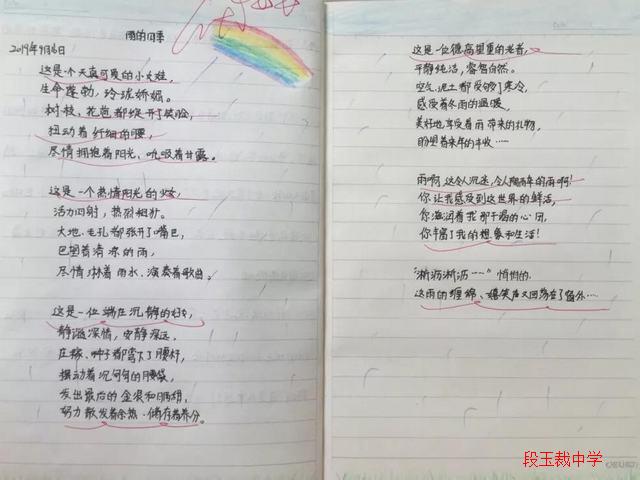 雨的四季
2019年9月16日
这是个天真可爱的小女娃,
生命蓬勃,玲珑娇媚。
树枝、花苞都绽开了笑脸,
扭动着纤细的腰,
尽情拥抱着阳光、吮吸着甘露。
这是一个热情阳光的少女,
活力四射,热烈粗犷。
大地、毛孔都张开了嘴巴,
巴望着清凉的雨,
尽情淋着雨水、演奏着歌曲。
这是一位端庄沉静的妇女,
静谧深情,安静深远。
庄稼、种子都弯下了腰杆,
摆动着沉甸甸的脑袋,
发出最后的金浪和
努力散发着余热、储存着养分。
这是一位德高望重的老者,
平静纯洁,睿智自然。
空气、泥土都受够了寒冷,
感受着冬雨的温暖,
美好地享受着雨带来的礼物,
盼望着来年的丰收……
雨啊,这令人沉迷,令人陶醉的雨啊!
你让我感受到这世界的鲜活,
你滋润着我那干渴的心田,
你丰富了我的想象和生活!
“淅沥淅沥……”悄悄的,
这雨的缠绵、嬉笑声又回荡在了窗外…
段玉裁中学